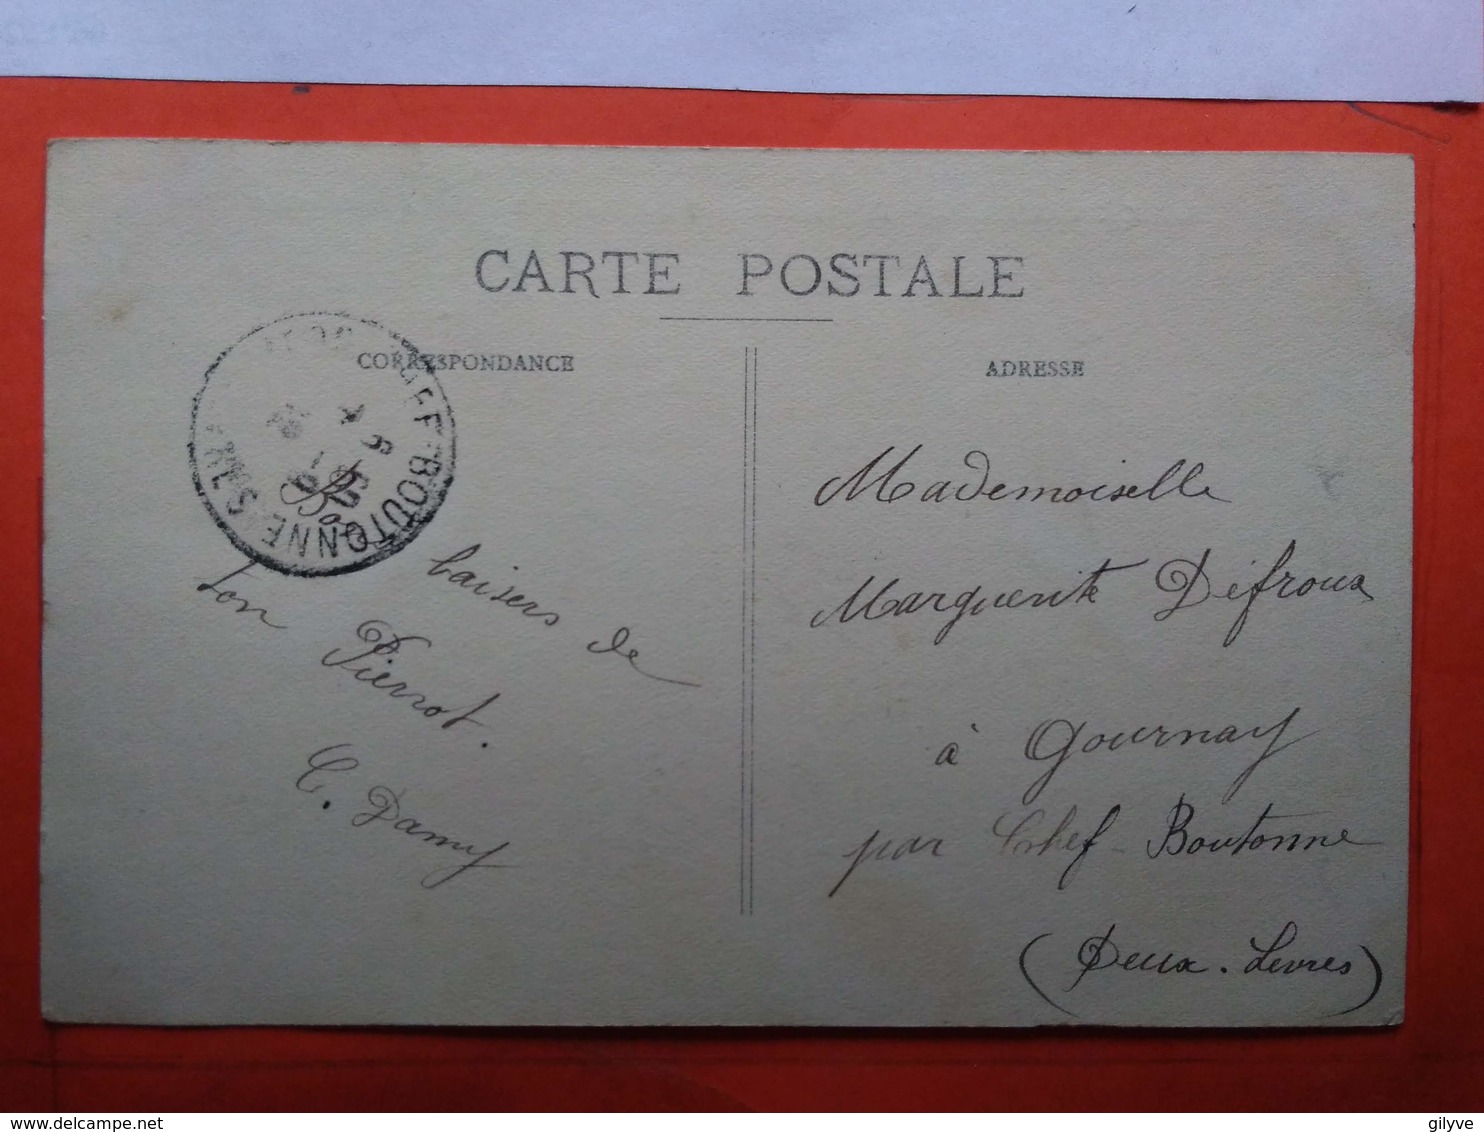 CARTE POSTALE
CORRESPONDANCE
ADRESSE
CHEF-BOUTONNE
SÈVRES
Bons
baisers de
ton Pierrot.
C. Damy
Mademoiselle
Marguerite Défroux
à Gournay
par Chef-Boutonne
(Deux-Sèvres)
delcampe.net
gilyve